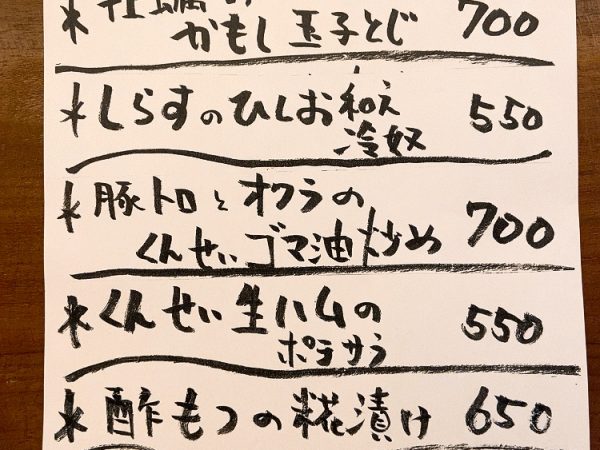 ＊牡蠣の
かもし玉子とじ 700
＊しらすのひしお和え
冷奴 550
＊豚トロとオクラの
くんせいゴマ油炒め 700
＊くんせい生ハムの
ポテサラ 550
＊酢もつの糀漬け 650